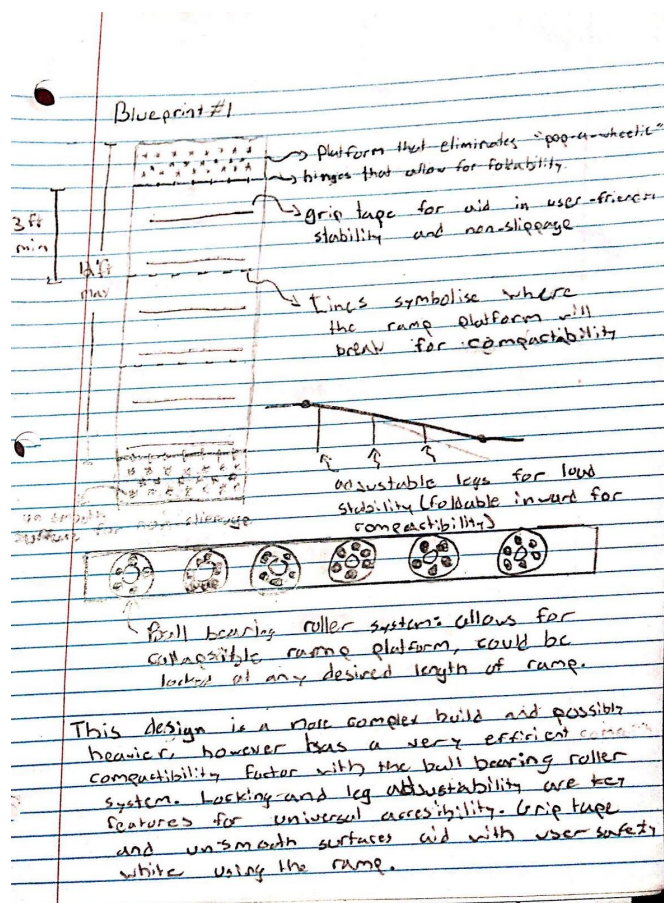 Blueprint #1
Platform that eliminates "pop-a-wheelie"
hinges that allow for foldability.
grip tape for aid in user-friendly
stability and non-slippage
3 ft
min
12 ft
max
Lines symbolise where
the ramp platform will
break for compactability
adjustable legs for load
stability (foldable inward for
compactibility)
un smooth
surface for non-slippage
Ball bearing roller system: allows for
collapsible ramp platform, could be
locked at any desired length of ramp.
This design is a more complex build and possibly
heavier, however has a very efficient
compactibility factor with the ball bearing roller
system. Locking and leg adjustability are key
features for universal accesibility. Grip tape
and un-smooth surfaces aid with user safety
while using the ramp.